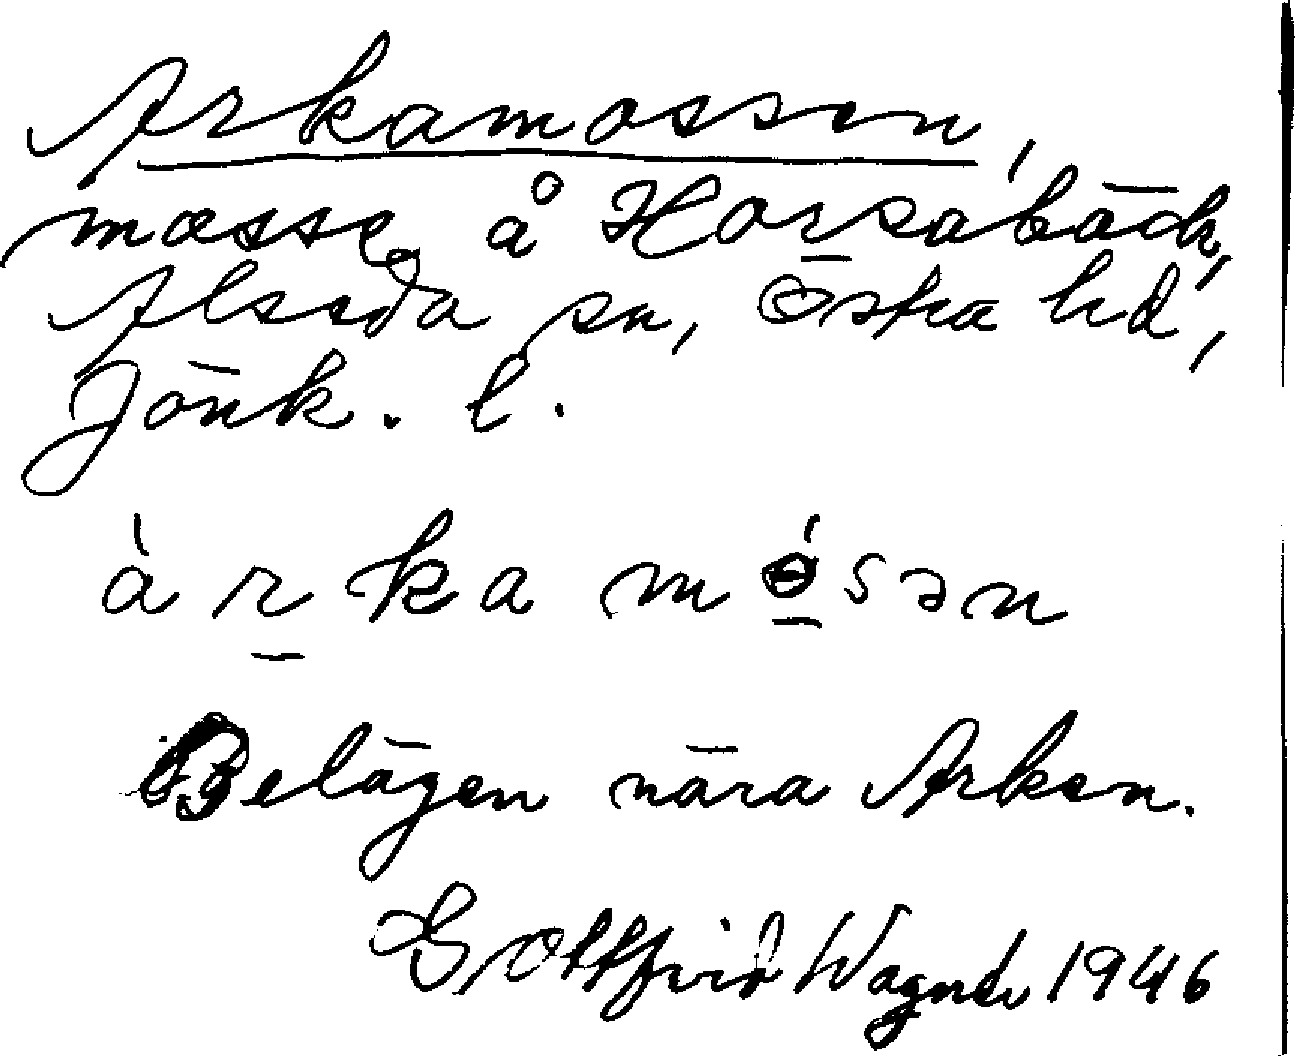 Arkamossen,
mosse å Horsabäck,
Alseda sn, Östra hd,
Jönk. l.
àrkamósən
Belägen nära Arken.
Gottfrid Wagnér 1946